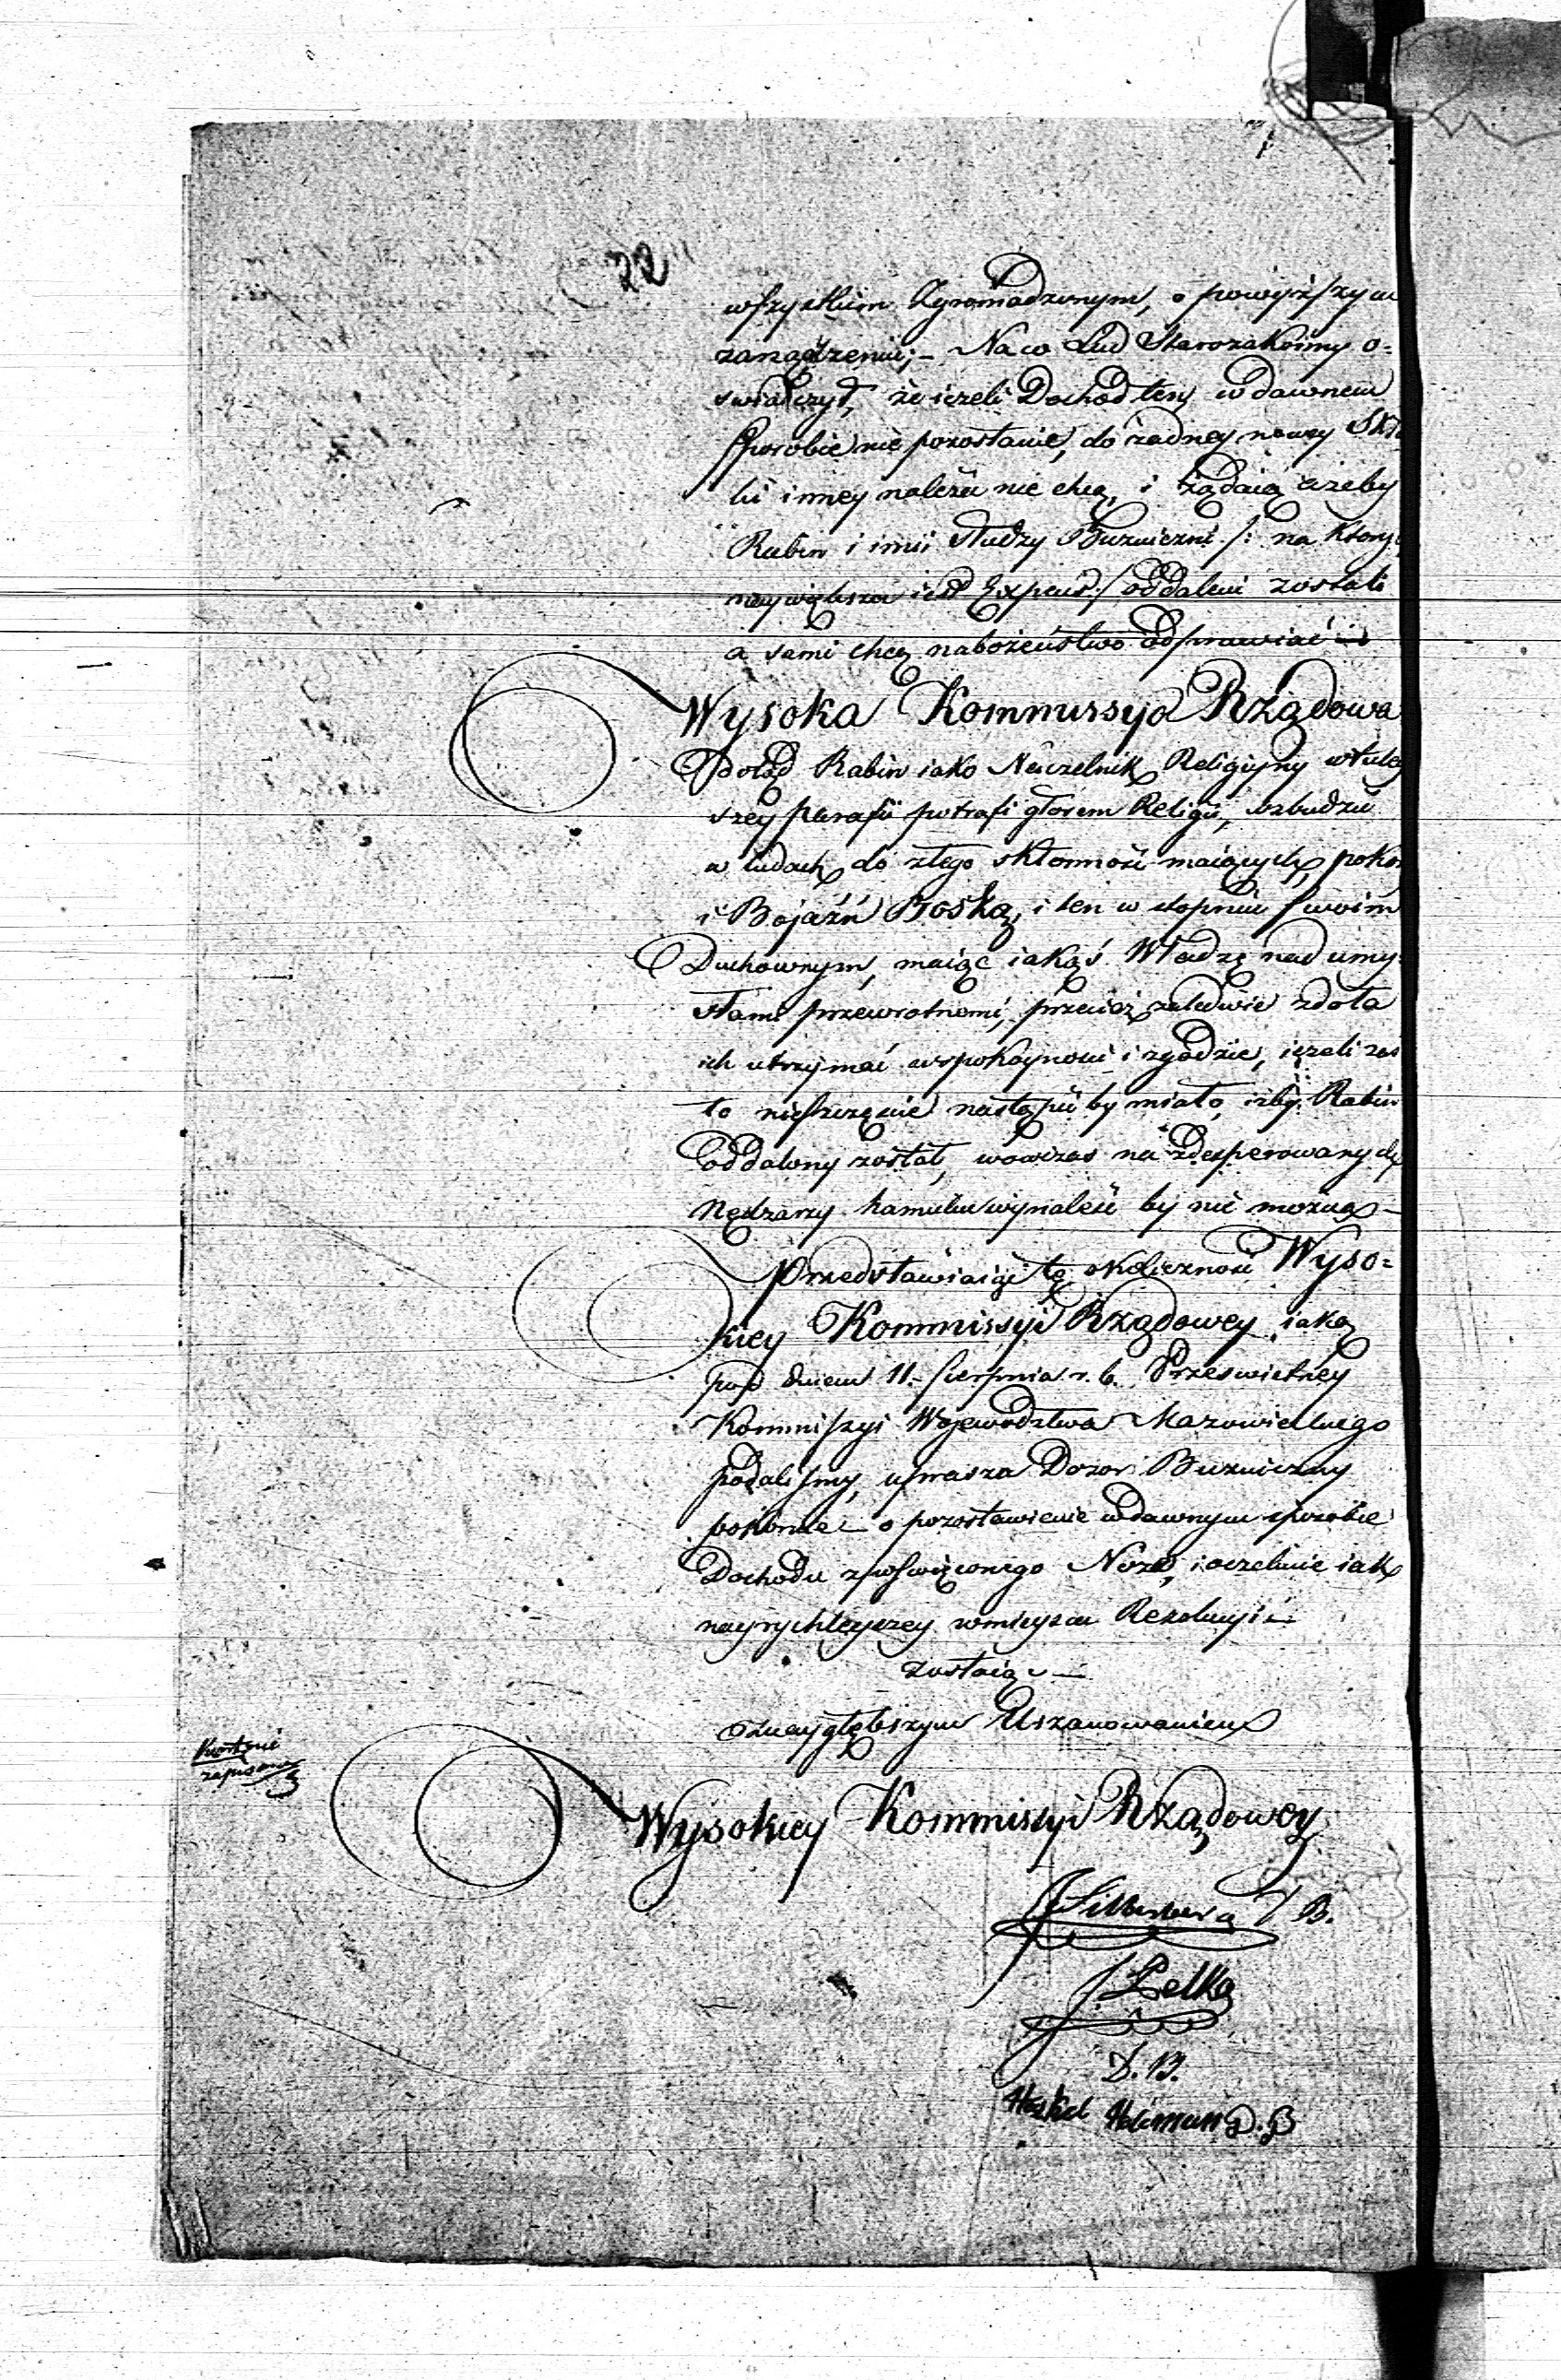 22
wszystkim Zgromadzonym, o powyższym
zarządzeniu; – Na co Lud Starozakonny o=
świadczył, że ieżeli Dochód ten w dawnem
sposobie nie pozostanie, do żadney nowey Skła
ki inney należeć nie chcą, i żądaią ażeby
Rabin i inni Słudzy Bużniczni /: na który
naywiększa iest Expens :/ oddaleni zostali
a sami chcą nabożeństwo odprawiać –
Wysoka Kommissyo Rządowa
Dotąd Rabin iako Naczelnik Religiyny w tutey
szey parafii potrafi głosem Religii, wzbudzić
w ludach do złego skłonność maiących, poko
i Bojaźń Boską, i ten w stopniu swoim
Duchownym, maiąc iakąś Władzę nad umy=
słami przewrotnemi, przecież zaledwie zdoła
ich utrzymać w spokoyności i zgodzie, ieżeli zaś
to nieszczęście nastąpić by miało, iżby Rabin
oddalony został, wówczas na zdesperowanych
Nędzarzy hamulcu wynaleść by nie można –
Przedstawiaiąc tę okoliczność Wyso=
kiey Kommissyi Rządowey iaką
pod dniem 11. Sierpnia r. b. Prześwietney
Kommissyi Województwa Mazowieckiego
podaliśmy, uprasza Dozór Bużniczny
pokornie – o pozostawienie w dawnym sposobie
Dochodu z poświęconego Noża, i oczekuie iak
nayrychleyszey w mieyscu Rezolucyi –
zostaiąc –
z naygłębszym Uszanowaniem
Wysokiey Kommissyi Rządowey
Silberberg D B.
Lelka
D. B.
Heskel D. B